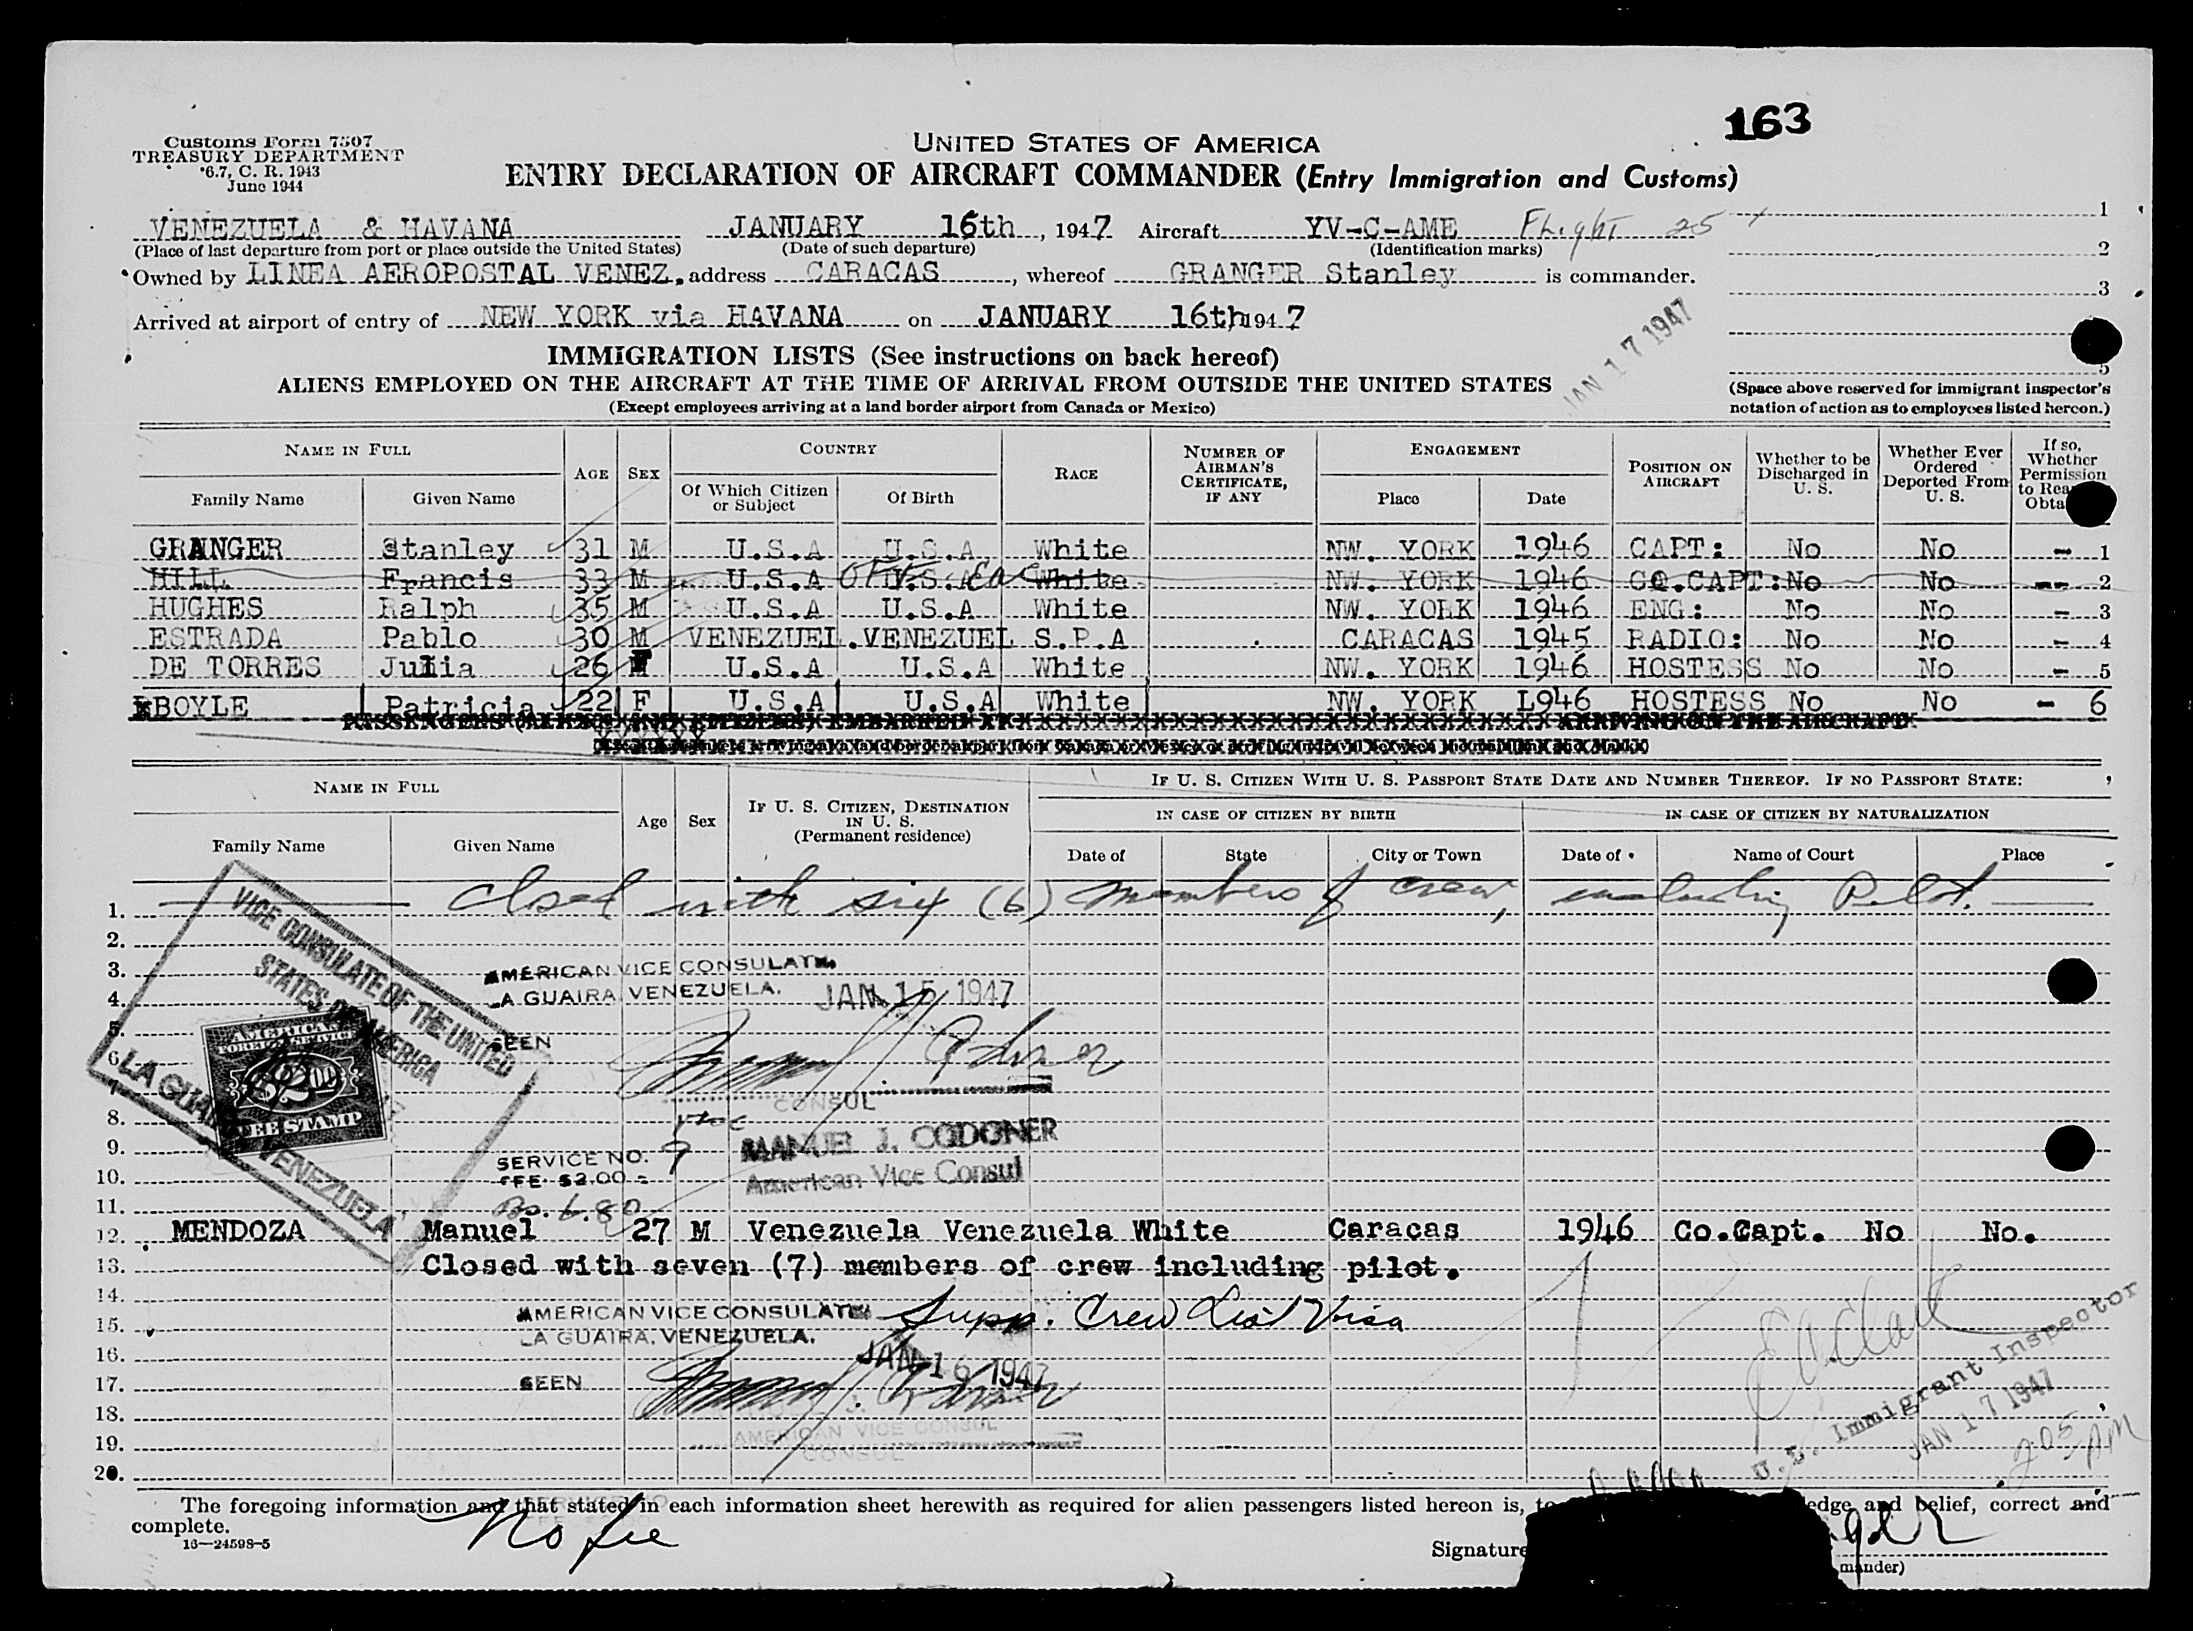 163
Customs Form 7507
TREASURY DEPARTMENT
6.7, C. R. 1943
June 1944
UNITED STATES OF AMERICA
ENTRY DECLARATION OF AIRCRAFT COMMANDER (Entry Immigration and Customs)
VENEZUELA & HAVANA JANUARY 16th, 1947 Aircraft YV-C-AME Flight 25 1
(Place of last departure from port or place outside the United States) (Date of such departure) (Identification marks) 2
Owned by LINEA AEROPOSTAL VENEZ. address CARACAS, whereof GRANGER Stanley is commander.
3
Arrived at airport of entry of NEW YORK via HAVANA on JANUARY 16th, 1947
JAN 17 1947
IMMIGRATION LISTS (See instructions on back hereof)
5
ALIENS EMPLOYED ON THE AIRCRAFT AT THE TIME OF ARRIVAL FROM OUTSIDE THE UNITED STATES
(Except employees arriving at a land border airport from Canada or Mexico)
(Space above reserved for immigrant inspector's
notation of action as to employees listed hereon.)
NAME IN FULL AGE SEX COUNTRY RACE NUMBER OF AIRMAN'S CERTIFICATE, IF ANY ENGAGEMENT POSITION ON AIRCRAFT Whether to be Discharged in U. S. Whether Ever Ordered Deported From U. S. If so, Whether Permission to Rea Obta
Family Name Given Name Of Which Citizen or Subject Of Birth Place Date
GRANGER Stanley 31 M U.S.A U.S.A White NW. YORK 1946 CAPT: No No - 1
HILL Francis 33 M U.S.A U.S.A White NW. YORK 1946 CO.CAPT: No No -- 2
HUGHES Ralph 35 M U.S.A U.S.A White NW. YORK 1946 ENG: No No - 3
ESTRADA Pablo 30 M VENEZUEL. VENEZUEL S.P.A CARACAS 1945 RADIO: No No - 4
DE TORRES Julia 26 F U.S.A U.S.A White NW. YORK 1946 HOSTESS No No - 5
BOYLE Patricia 22 F U.S.A U.S.A White NW. YORK L946 HOSTESS No No - 6
NAME IN FULL Age Sex IF U. S. CITIZEN, DESTINATION IN U. S. (Permanent residence) IF U. S. CITIZEN WITH U. S. PASSPORT STATE DATE AND NUMBER THEREOF. IF NO PASSPORT STATE:
IN CASE OF CITIZEN BY BIRTH IN CASE OF CITIZEN BY NATURALIZATION
Family Name Given Name Date of State City or Town Date of Name of Court Place
1. Closed with six (6) members of crew, including Pilot.
2.
3. AMERICAN VICE CONSULATE
4. LA GUAIRA, VENEZUELA. JAN 15 1947
VICE CONSULATE OF THE UNITED
STATES OF AMERICA
LA GUAIRA VENEZUELA
AMERICAN
FOREIGN SERVICE
$2.00
FEE STAMP
5. SEEN
6.
7.
CONSUL
8. Vice
MANUEL J. CODONER
9. SERVICE NO. 9
American Vice Consul
10. FEE $2.00
11. Bs. 6.80
12. MENDOZA Manuel 27 M Venezuela Venezuela White Caracas 1946 Co.Capt. No No.
13. Closed with seven (7) members of crew including pilot.
14. AMERICAN VICE CONSULATE Supp. Crew List Visa
15. LA GUAIRA, VENEZUELA.
16. JAN 16 1947
17. SEEN
18. AMERICAN VICE CONSUL
19. CONSUL
20.
U.S. Immigrant Inspector
JAN 17 1947
2:05 PM
The foregoing information and that stated in each information sheet herewith as required for alien passengers listed hereon is, to edge and belief, correct and
complete.
16—24598-5
No fee
Signature
mander)